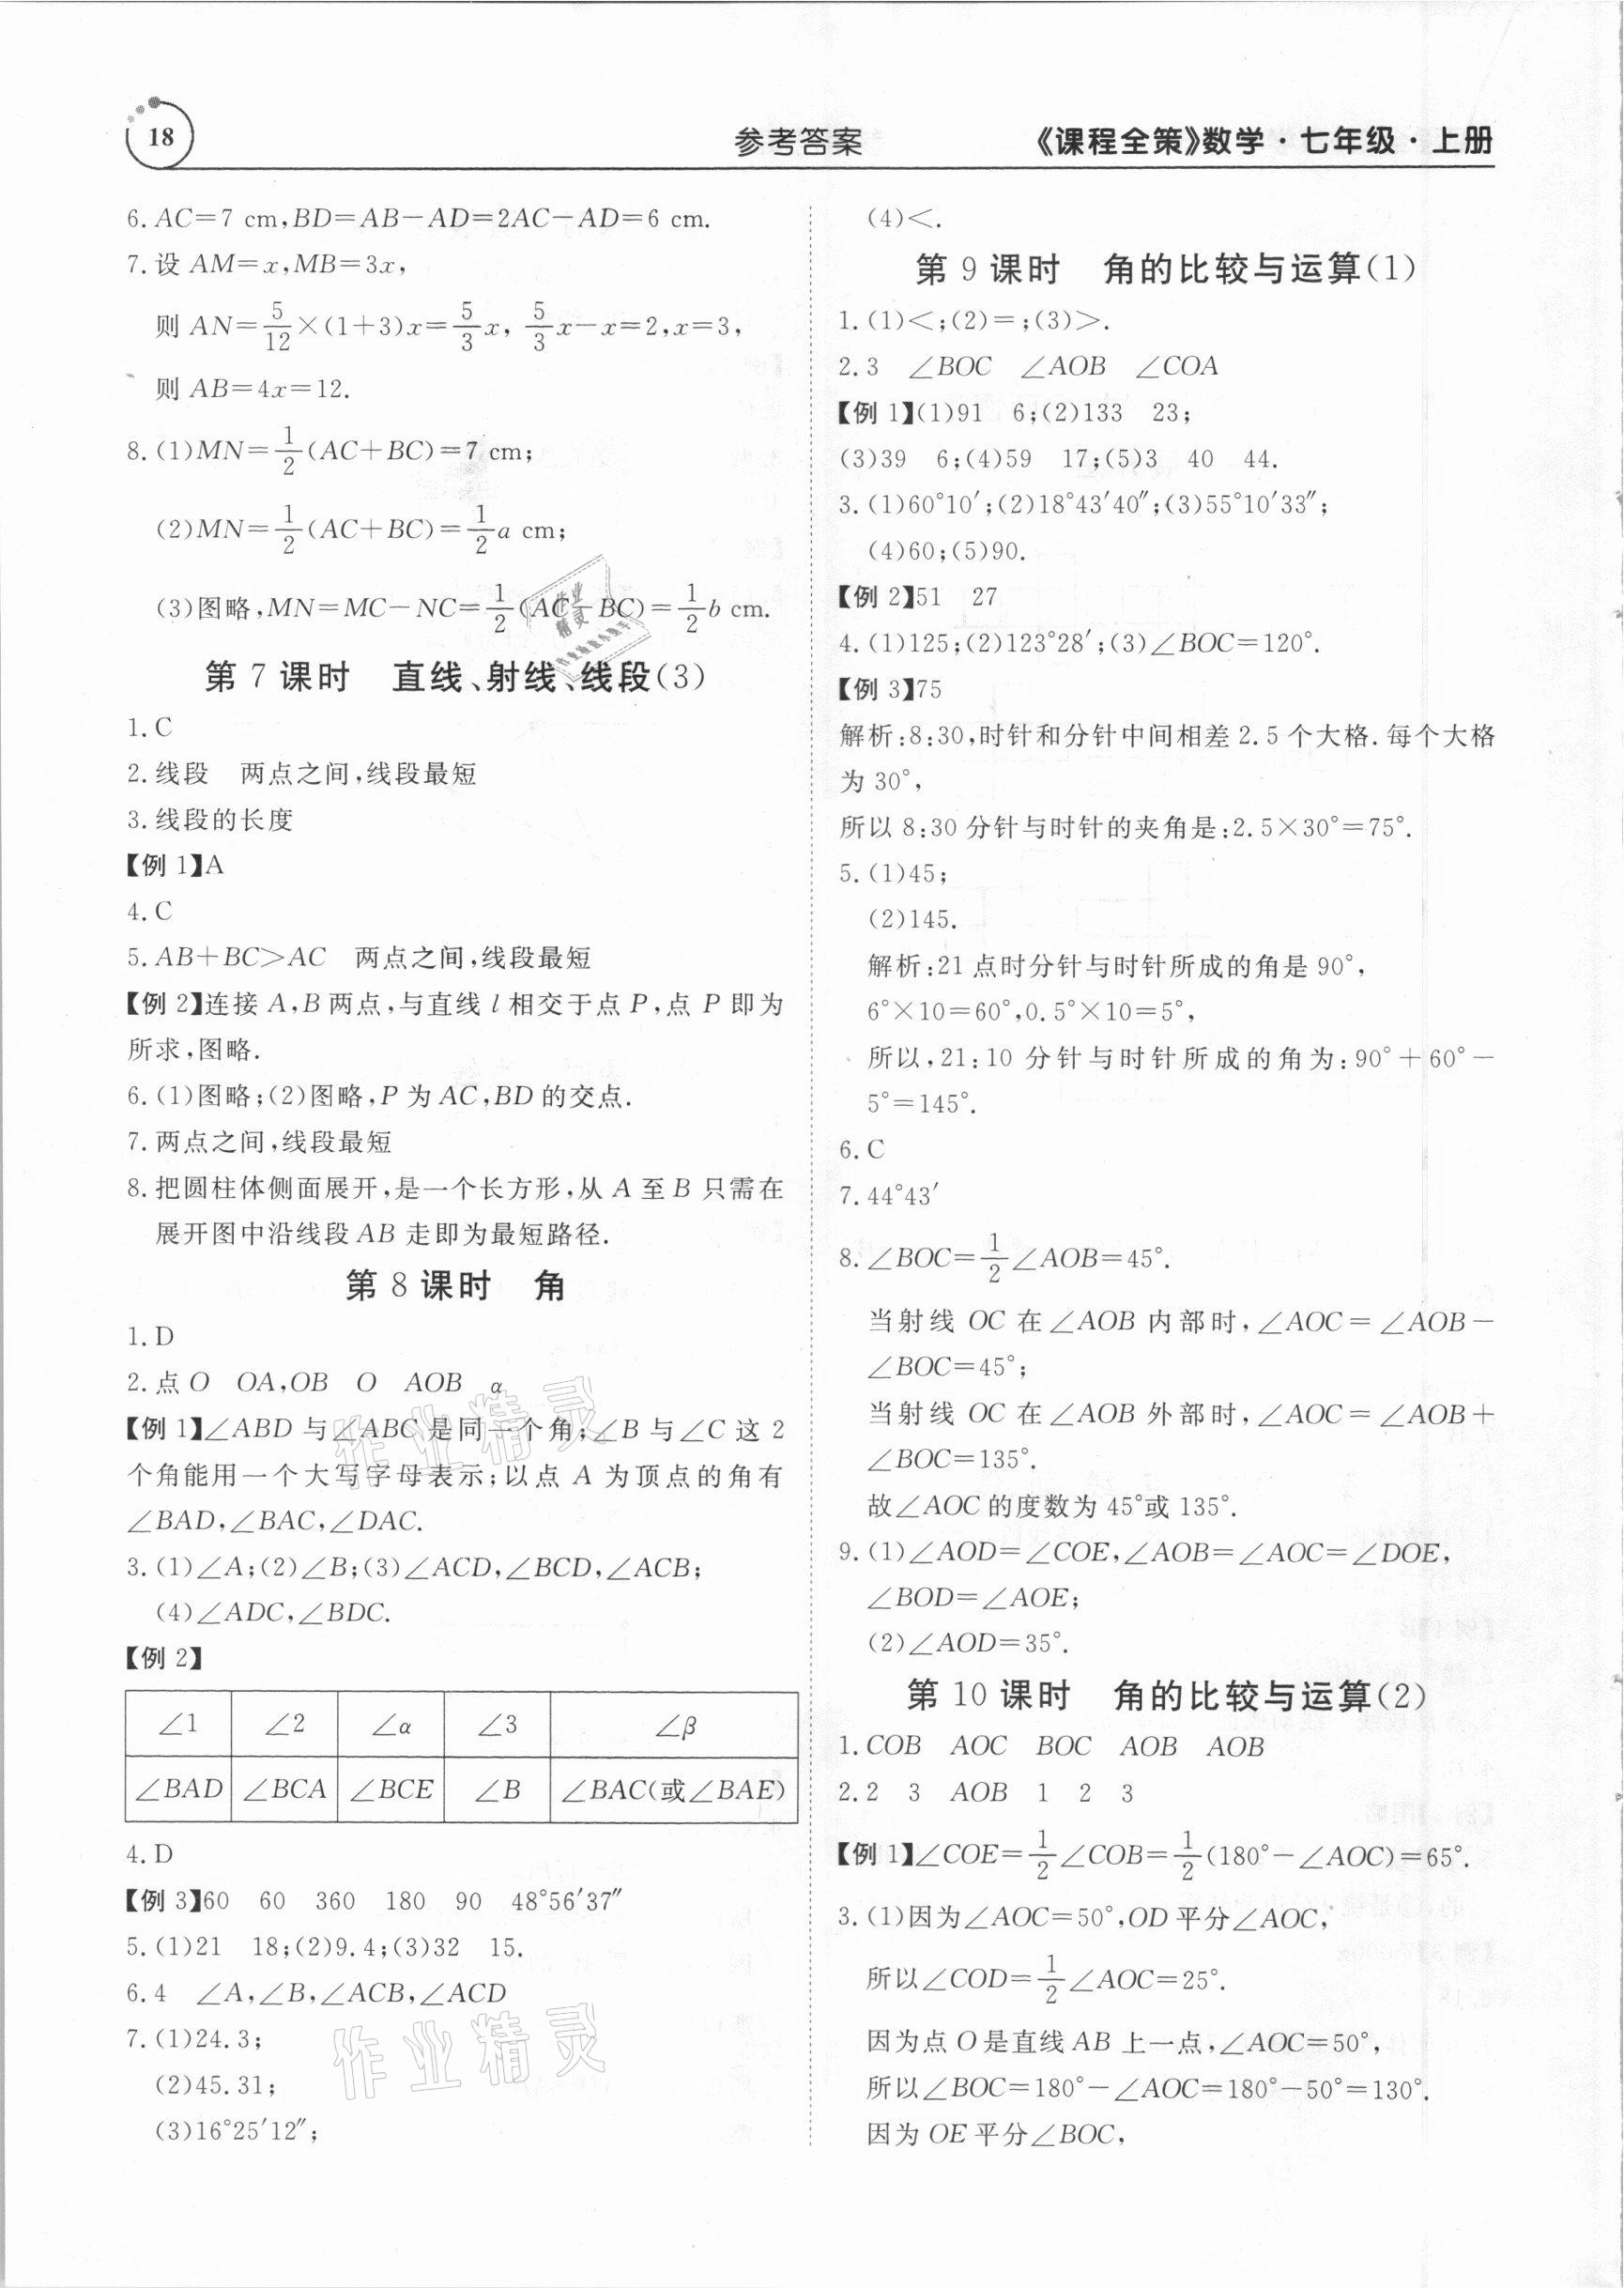 18
参考答案
《课程全策》数学·七年级·上册
6. AC=7 cm,BD=AB-AD=2AC-AD=6 cm.
7. 设 AM=x,MB=3x,
则 AN=5/12×(1+3)x=5/3x, 5/3x-x=2,x=3,
则 AB=4x=12.
8. (1)MN=1/2(AC+BC)=7 cm;
(2)MN=1/2(AC+BC)=1/2a cm;
(3)图略,MN=MC-NC=1/2(AC-BC)=1/2b cm.
第 7 课时 直线、射线、线段(3)
1. C
2. 线段 两点之间,线段最短
3. 线段的长度
【例 1】A
4. C
5. AB+BC>AC 两点之间,线段最短
【例 2】连接 A,B 两点,与直线 l 相交于点 P,点 P 即为
所求,图略.
6. (1)图略;(2)图略,P 为 AC,BD 的交点.
7. 两点之间,线段最短
8. 把圆柱体侧面展开,是一个长方形,从 A 至 B 只需在
展开图中沿线段 AB 走即为最短路径.
第 8 课时 角
1. D
2. 点 O OA,OB O AOB α
【例 1】∠ABD 与∠ABC 是同一个角;∠B 与∠C 这 2
个角能用一个大写字母表示;以点 A 为顶点的角有
∠BAD,∠BAC,∠DAC.
3. (1)∠A;(2)∠B;(3)∠ACD,∠BCD,∠ACB;
(4)∠ADC,∠BDC.
【例 2】
∠1 ∠2 ∠α ∠3 ∠β
∠BAD ∠BCA ∠BCE ∠B ∠BAC(或∠BAE)
4. D
【例 3】60 60 360 180 90 48°56′37″
5. (1)21 18;(2)9.4;(3)32 15.
6. 4 ∠A,∠B,∠ACB,∠ACD
7. (1)24.3;
(2)45.31;
(3)16°25′12″;
(4)<.
第 9 课时 角的比较与运算(1)
1. (1)<;(2)=;(3)>.
2. 3 ∠BOC ∠AOB ∠COA
【例 1】(1)91 6;(2)133 23;
(3)39 6;(4)59 17;(5)3 40 44.
3. (1)60°10′;(2)18°43′40″;(3)55°10′33″;
(4)60;(5)90.
【例 2】51 27
4. (1)125;(2)123°28′;(3)∠BOC=120°.
【例 3】75
解析:8:30,时针和分针中间相差 2.5 个大格.每个大格
为 30°,
所以 8:30 分针与时针的夹角是:2.5×30°=75°.
5. (1)45;
(2)145.
解析:21 点时分针与时针所成的角是 90°,
6°×10=60°,0.5°×10=5°,
所以,21:10 分针与时针所成的角为:90°+60°-
5°=145°.
6. C
7. 44°43′
8. ∠BOC=1/2∠AOB=45°.
当射线 OC 在∠AOB 内部时,∠AOC=∠AOB-
∠BOC=45°;
当射线 OC 在∠AOB 外部时,∠AOC=∠AOB+
∠BOC=135°.
故∠AOC 的度数为 45°或 135°.
9. (1)∠AOD=∠COE,∠AOB=∠AOC=∠DOE,
∠BOD=∠AOE;
(2)∠AOD=35°.
第 10 课时 角的比较与运算(2)
1. COB AOC BOC AOB AOB
2. 2 3 AOB 1 2 3
【例 1】∠COE=1/2∠COB=1/2(180°-∠AOC)=65°.
3. (1)因为∠AOC=50°,OD 平分∠AOC,
所以∠COD=1/2∠AOC=25°.
因为点 O 是直线 AB 上一点,∠AOC=50°,
所以∠BOC=180°-∠AOC=180°-50°=130°.
因为 OE 平分∠BOC,
作业精灵
作业精灵
作业精灵